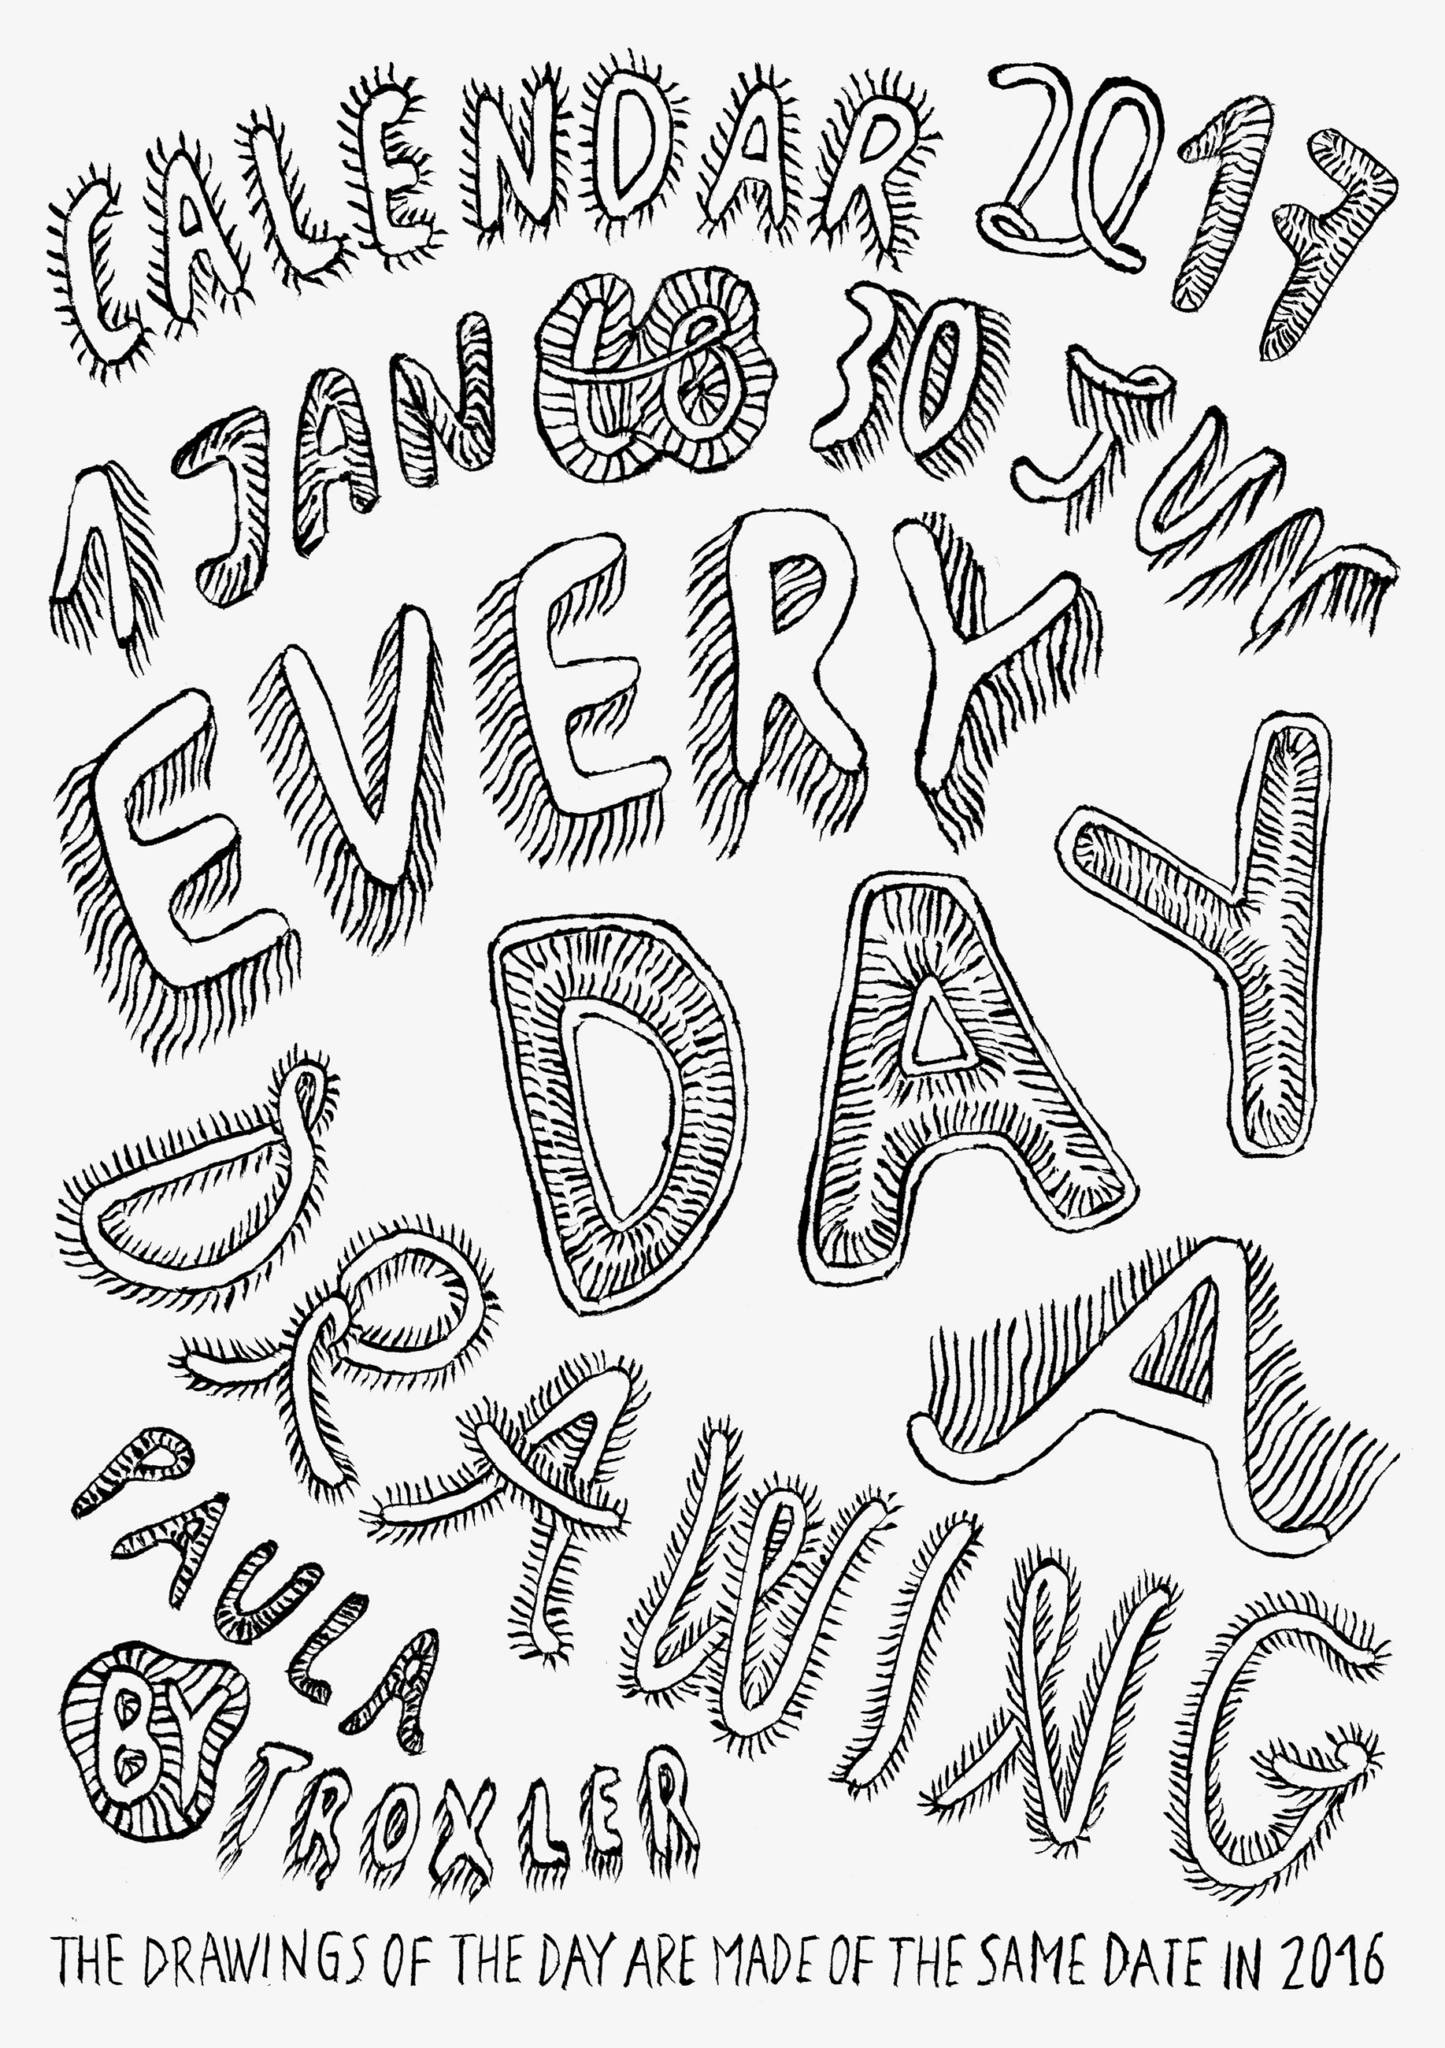 CALENDAR 2017
1 JAN to 30 JUN
EVERY
DAY
A
DRAWING
BY PAULA
TROXLER
THE DRAWINGS OF THE DAY ARE MADE OF THE SAME DATE IN 2016